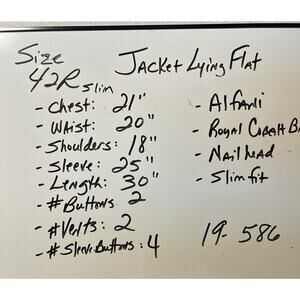 Size
42R Slim
Jacket Lying Flat
- Chest: 21"
- Waist: 20"
- Shoulders: 18"
- Sleeve: 25"
- Length: 30"
- # Buttons: 2
- # Vents: 2
- # Sleeve Buttons: 4
- Alfani
- Royal Cobalt B
- Nailhead
- Slim fit
19-586